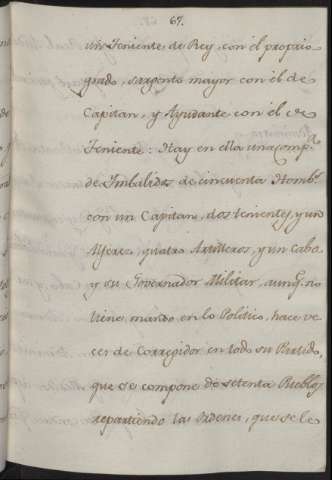 67.
un Teniente de Rey, con el proprio
grado, sargento mayor con el de
Capitan, y Ayudante con el de
Teniente: Hay en ella una comp.ª
de Imbalidos de cincuenta Homb.s
con un Capitan, dos tenientes, y un
Alferez, quatro Artilleros, y un Cabo
y su Governador Militar, aunq. no
tiene mando en lo Politico, hace ve
ces de Corregidor en todo su Partido,
que se compone de setenta Pueblos
repartiendo las Ordenes, que se le